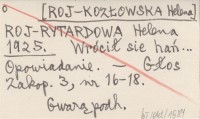 [ROJ-KOZŁOWSKA Helena]
ROJ-RYTARDOWA Helena
1925. Wrócił sie hań...
Opowiadanie. — Głos
Zakop. 3, nr 16-18.
Gwarą podh.